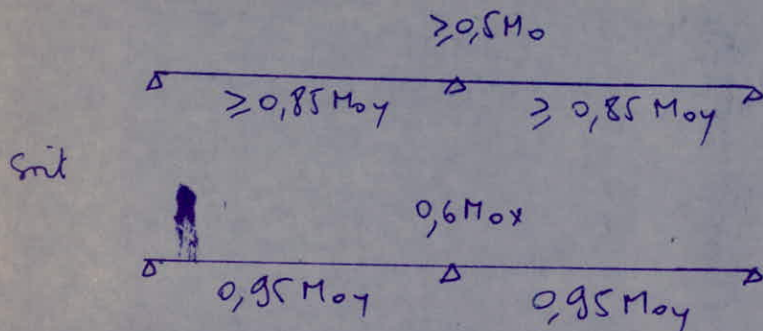 ≥0,5M₀
≥0,85 Moy ≥ 0,85 Moy
Soit
0,6 Mox
0,95 Moy 0,95 Moy